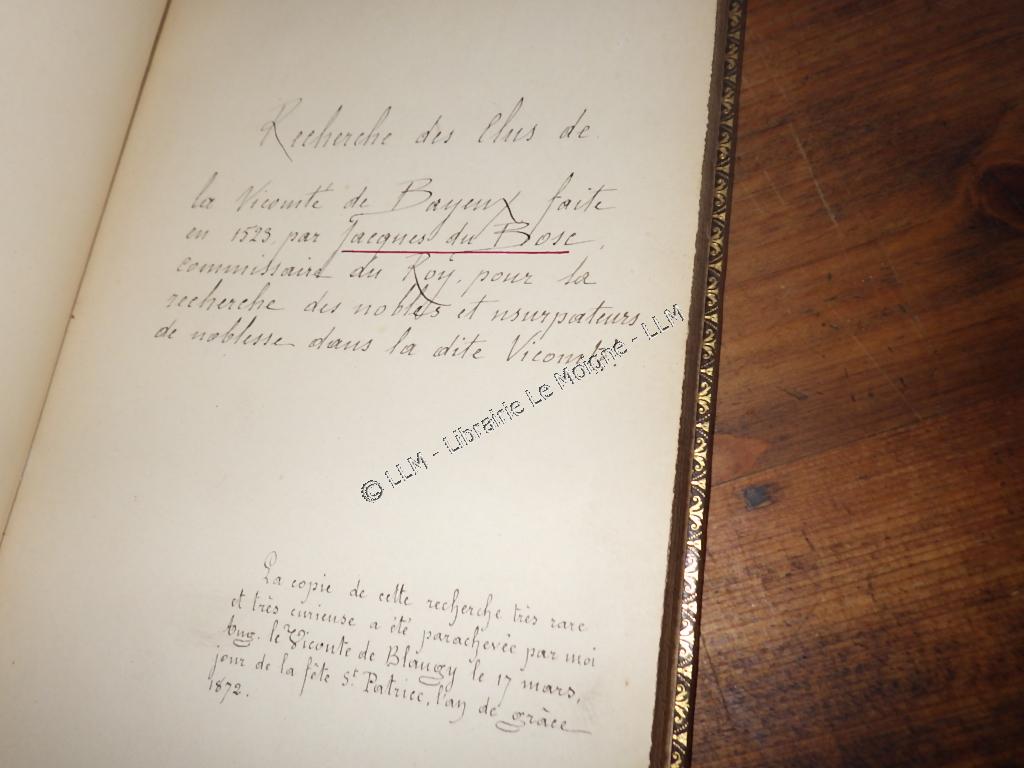 Recherche des Elus de
la Vicomté de Bayeux faite
en 1523, par Jacques du Bosc,
commissaire du Roy, pour la
recherche des nobles et usurpateurs
de noblesse dans la dite Vicomté
© LLM - Librairie Le Moigne - LLM
La copie de cette recherche très rare
et très curieuse a été parachevée par moi
Aug. le Vicomte de Blangy le 17 mars,
jour de la fête St Patrice, l'an de grâce
1872.